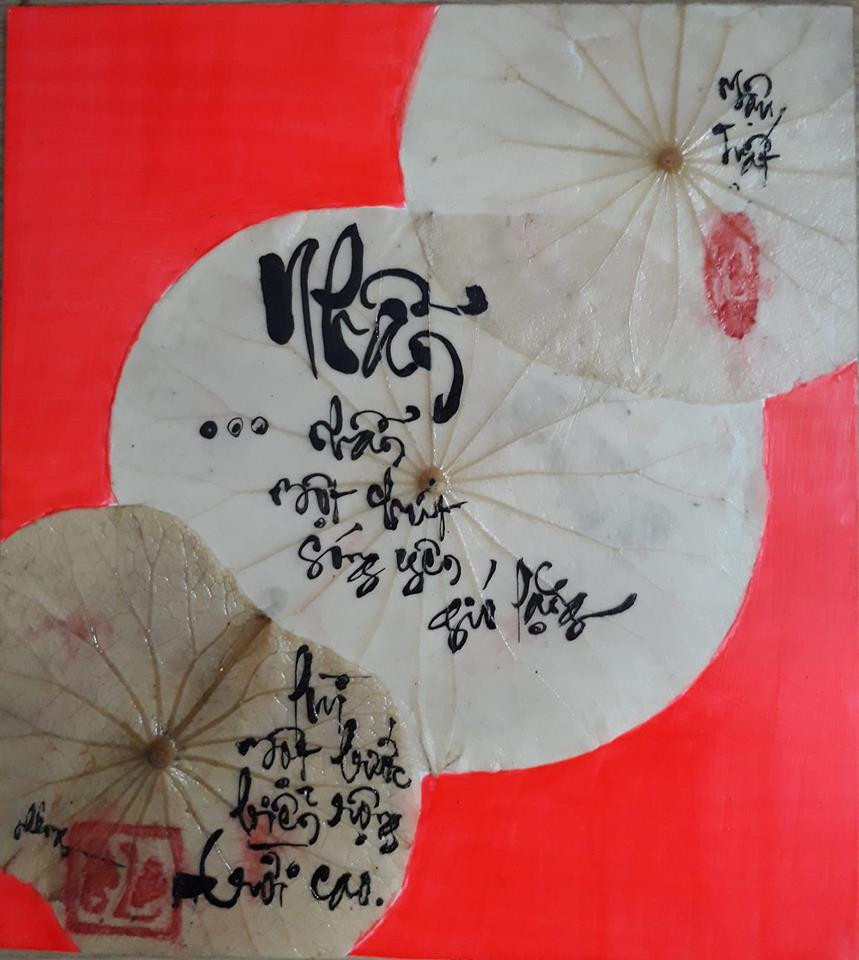 Mậu
Tuất
Nhẫn
... nhẫn
một chút
sóng yên
gió lặng
lùi
một bước
biển rộng
trời cao.